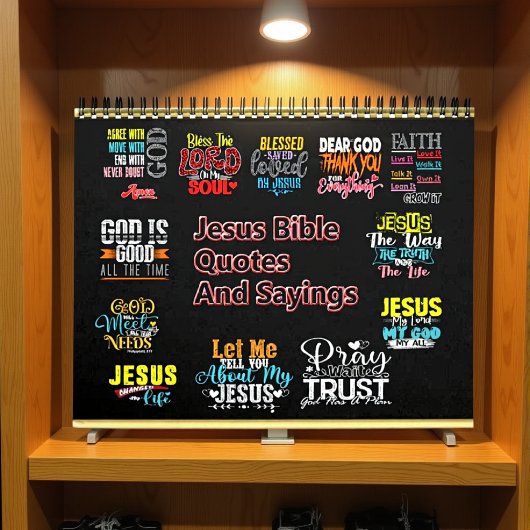 AGREE WITH
MOVE WITH
END WITH
NEVER DOUBT
GOD
Amen
Bless The
LORD
Oh My
SOUL
BLESSED
SAVED
loved
BY JESUS
DEAR GOD
THANK YOU
FOR
Everything
FAITH
Love It
Live It
Walk It
Talk It
Own It
Loan It
GROW IT
GOD IS
GOOD
ALL THE TIME
Jesus Bible
Quotes
And Sayings
JESUS
The Way
THE TRUTH
AND
The Life
GOD
Will
Meet
All Your
NEEDS
JESUS
My Lord
MY GOD
MY ALL
JESUS
CHANGED
My
life
Let Me
TELL YOU
About My
JESUS
Pray
Wait
TRUST
God Has A Plan